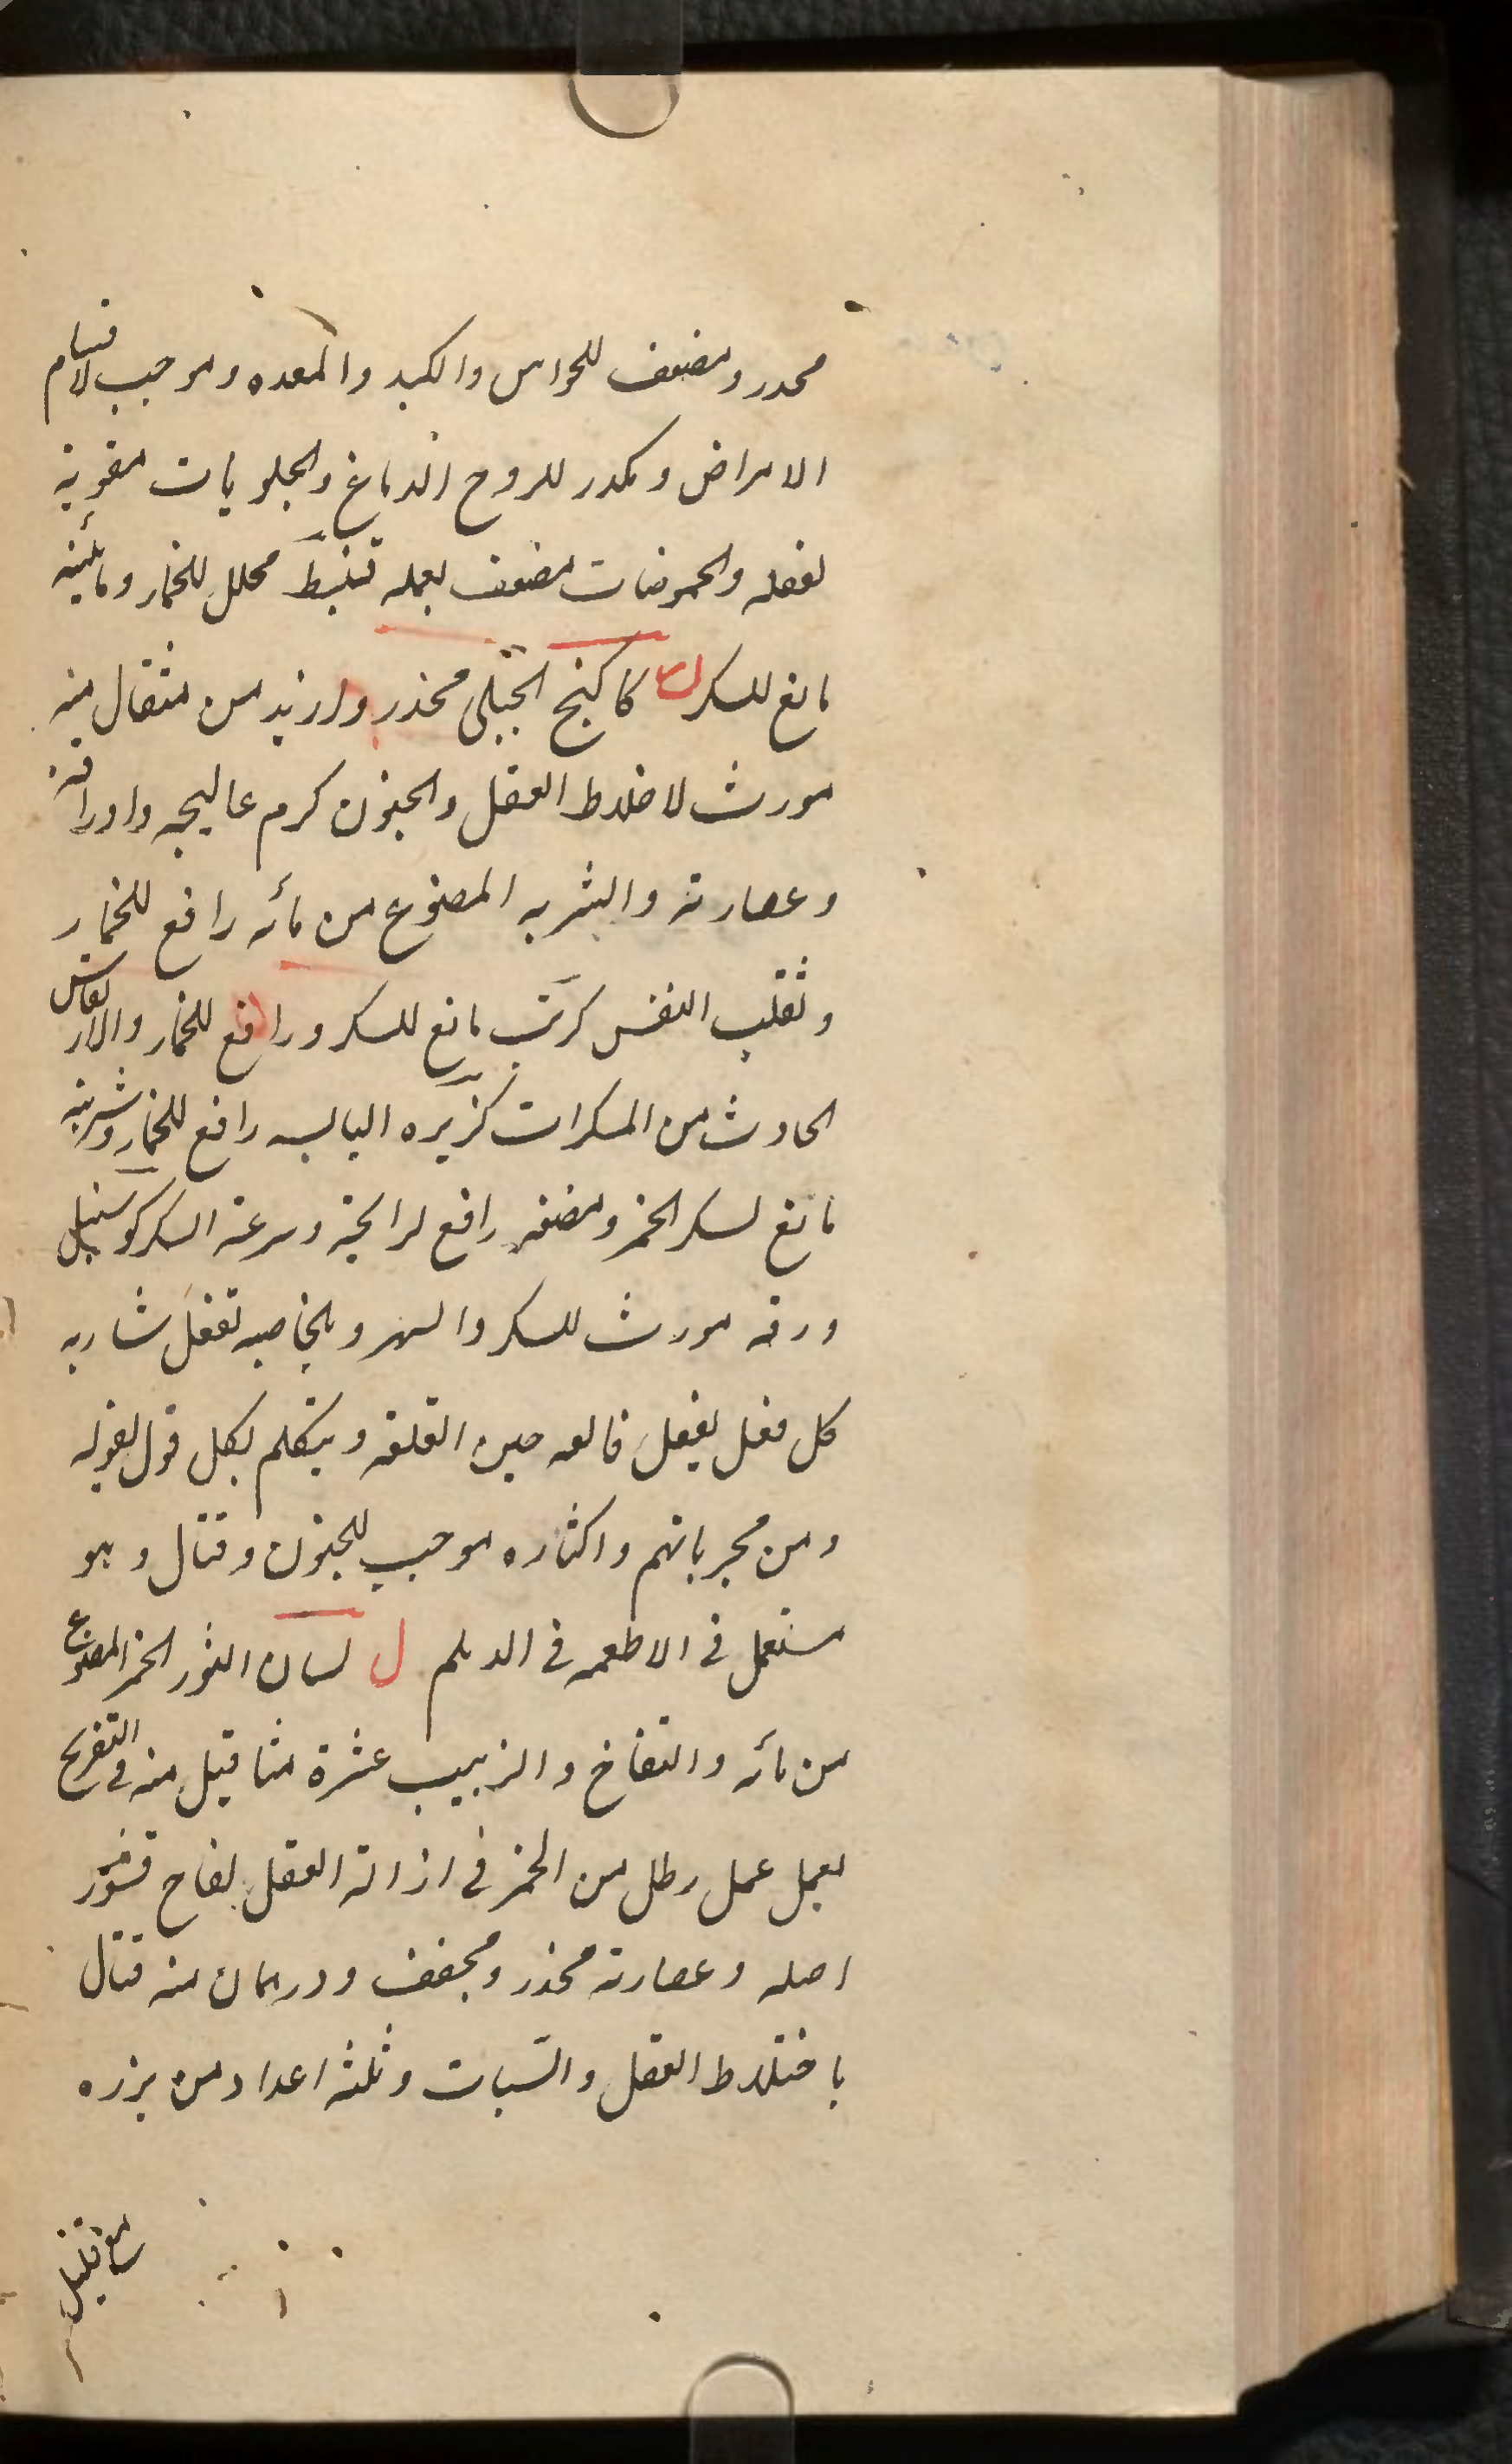 مخدر ومضعف للحواس والكبد والمعده وموجب لاقسام
الامراض ومكدر للروح الدماغ والحلويات مقوية
لفعله والحموضات مضعف لعمله قنبيط محلل للخمار ومائيته
مانع للسكر ك كاكنج الجبلى مخدر وازيد من مثقال منه
مورث لاختلاط العقل والجنون كرم عاليجه واوراقه
وعصارته والشربه المصنوع من مائه رافع للخمار
وتقلب النفس كرنب مانع للسكر ورافع للخمار والارتعاش
الحادث من المسكرات كزبره اليابسه رافع للخمار وشربته
مانع لسكر الخمر ومضغه رافع لرائحته وسرعة السكر كوسنبيل
ورقه مورث للسكر والسهر وبالخاصيه تفعل شاربه
كل فعل يفعل قالعه حين القلعه ويتكلم بكل قول يقوله
ومن مجرباتهم واكثاره موجب للجنون وقتال وهو
مستعمل فى الاطعمه فى الديلم ل لسان الثور الخمر المصنوع
من مائه والتفاح والزبيب عشرة مثاقيل منه فى التفريح
يعمل عمل رطل من الخمر فى ازالة العقل لفاح قشور
اصله وعصارته مخدر ومجفف ودرهمان منه قتال
باختلاط العقل والسبات وثلثه اعداد من بزره
مع قليل